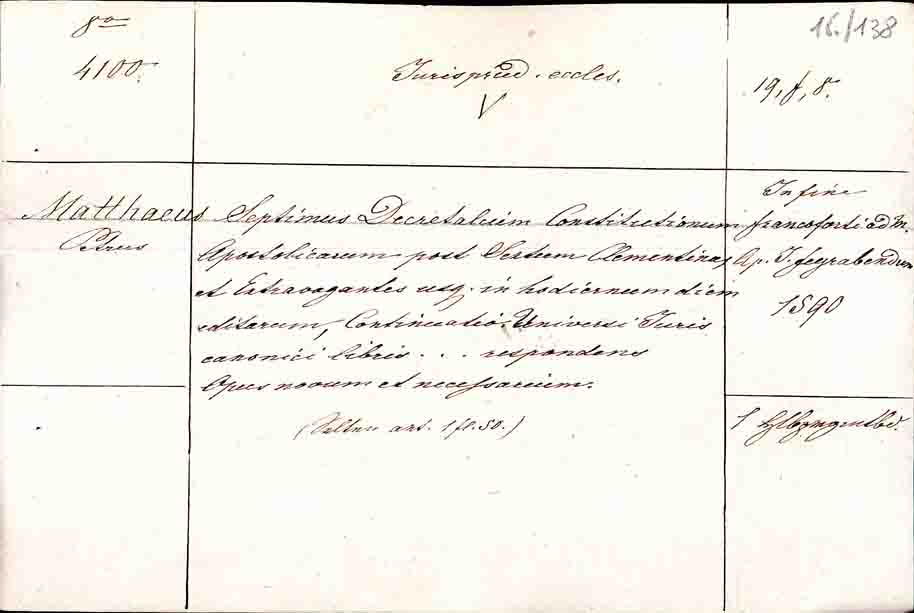 8vo
4100.
Jurisprud. eccles.
V
16./138
19, f, 8.
Matthaeus
Petrus
Septimus Decretalium Constitutionum
Apostolicarum post Sextum Clementinas
et Extravagantes usq. in hodiernum diem
editarum, Continuatio Universi Juris
canonici libris . . . respondens
Opus novum et necessarium.
(Selten ant. 1 fl. 50.)
In fine
francoforti ad M.
Ap. J. feyrabendum
1590
1